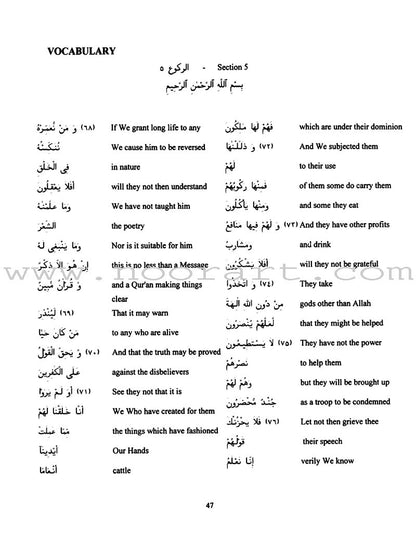 VOCABULARY
الركوع ٥ - Section 5
بِسْمِ اللهِ الرَّحْمٰنِ الرَّحِيمِ
(٦٨) وَ مَنْ نُعَمِّرْهُ If We grant long life to any
نُنَكِّسْهُ We cause him to be reversed
فِي الْخَلْقِ in nature
أَفَلَا يَعْقِلُونَ will they not then understand
وَمَا عَلَّمْنٰهُ We have not taught him
الشِّعْرَ the poetry
وَمَا يَنْبَغِي لَهُ Nor is it suitable for him
إِنْ هُوَ إِلَّا ذِكْرٌ this is no less than a Message
وَ قُرْآنٌ مُبِينٌ and a Qur'an making things
clear
(٦٩) لِيُنْذِرَ That it may warn
مَنْ كَانَ حَيًّا to any who are alive
(٧٠) وَ يَحِقَّ الْقَوْلُ And that the truth may be proved
عَلَى الْكٰفِرِينَ against the disbelievers
(٧١) أَوَ لَمْ يَرَوْا See they not that it is
أَنَّا خَلَقْنَا لَهُمْ We Who have created for them
مِمَّا عَمِلَتْ the things which have fashioned
أَيْدِينَا Our Hands
أَنْعَامًا cattle
فَهُمْ لَهَا مٰلِكُونَ which are under their dominion
(٧٢) وَ ذَلَّلْنٰهَا And We subjected them
لَهُمْ to their use
فَمِنْهَا رَكُوبُهُمْ of them some do carry them
وَمِنْهَا يَأْكُلُونَ and some they eat
(٧٣) وَ لَهُمْ فِيهَا مَنَافِعُ And they have other profits
وَمَشَارِبُ and drink
أَفَلَا يَشْكُرُونَ will they not be grateful
(٧٤) وَ اتَّخَذُوا They take
مِنْ دُونِ اللهِ آلِهَةً gods other than Allah
لَعَلَّهُمْ يُنْصَرُونَ that they might be helped
(٧٥) لَا يَسْتَطِيعُونَ They have not the power
نَصْرَهُمْ to help them
وَهُمْ لَهُمْ but they will be brought up
جُنْدٌ مُحْضَرُونَ as a troop to be condemned
(٧٦) فَلَا يَحْزُنْكَ Let not then grieve thee
قَوْلُهُمْ their speech
إِنَّا نَعْلَمُ verily We know
www.noorart.com
47